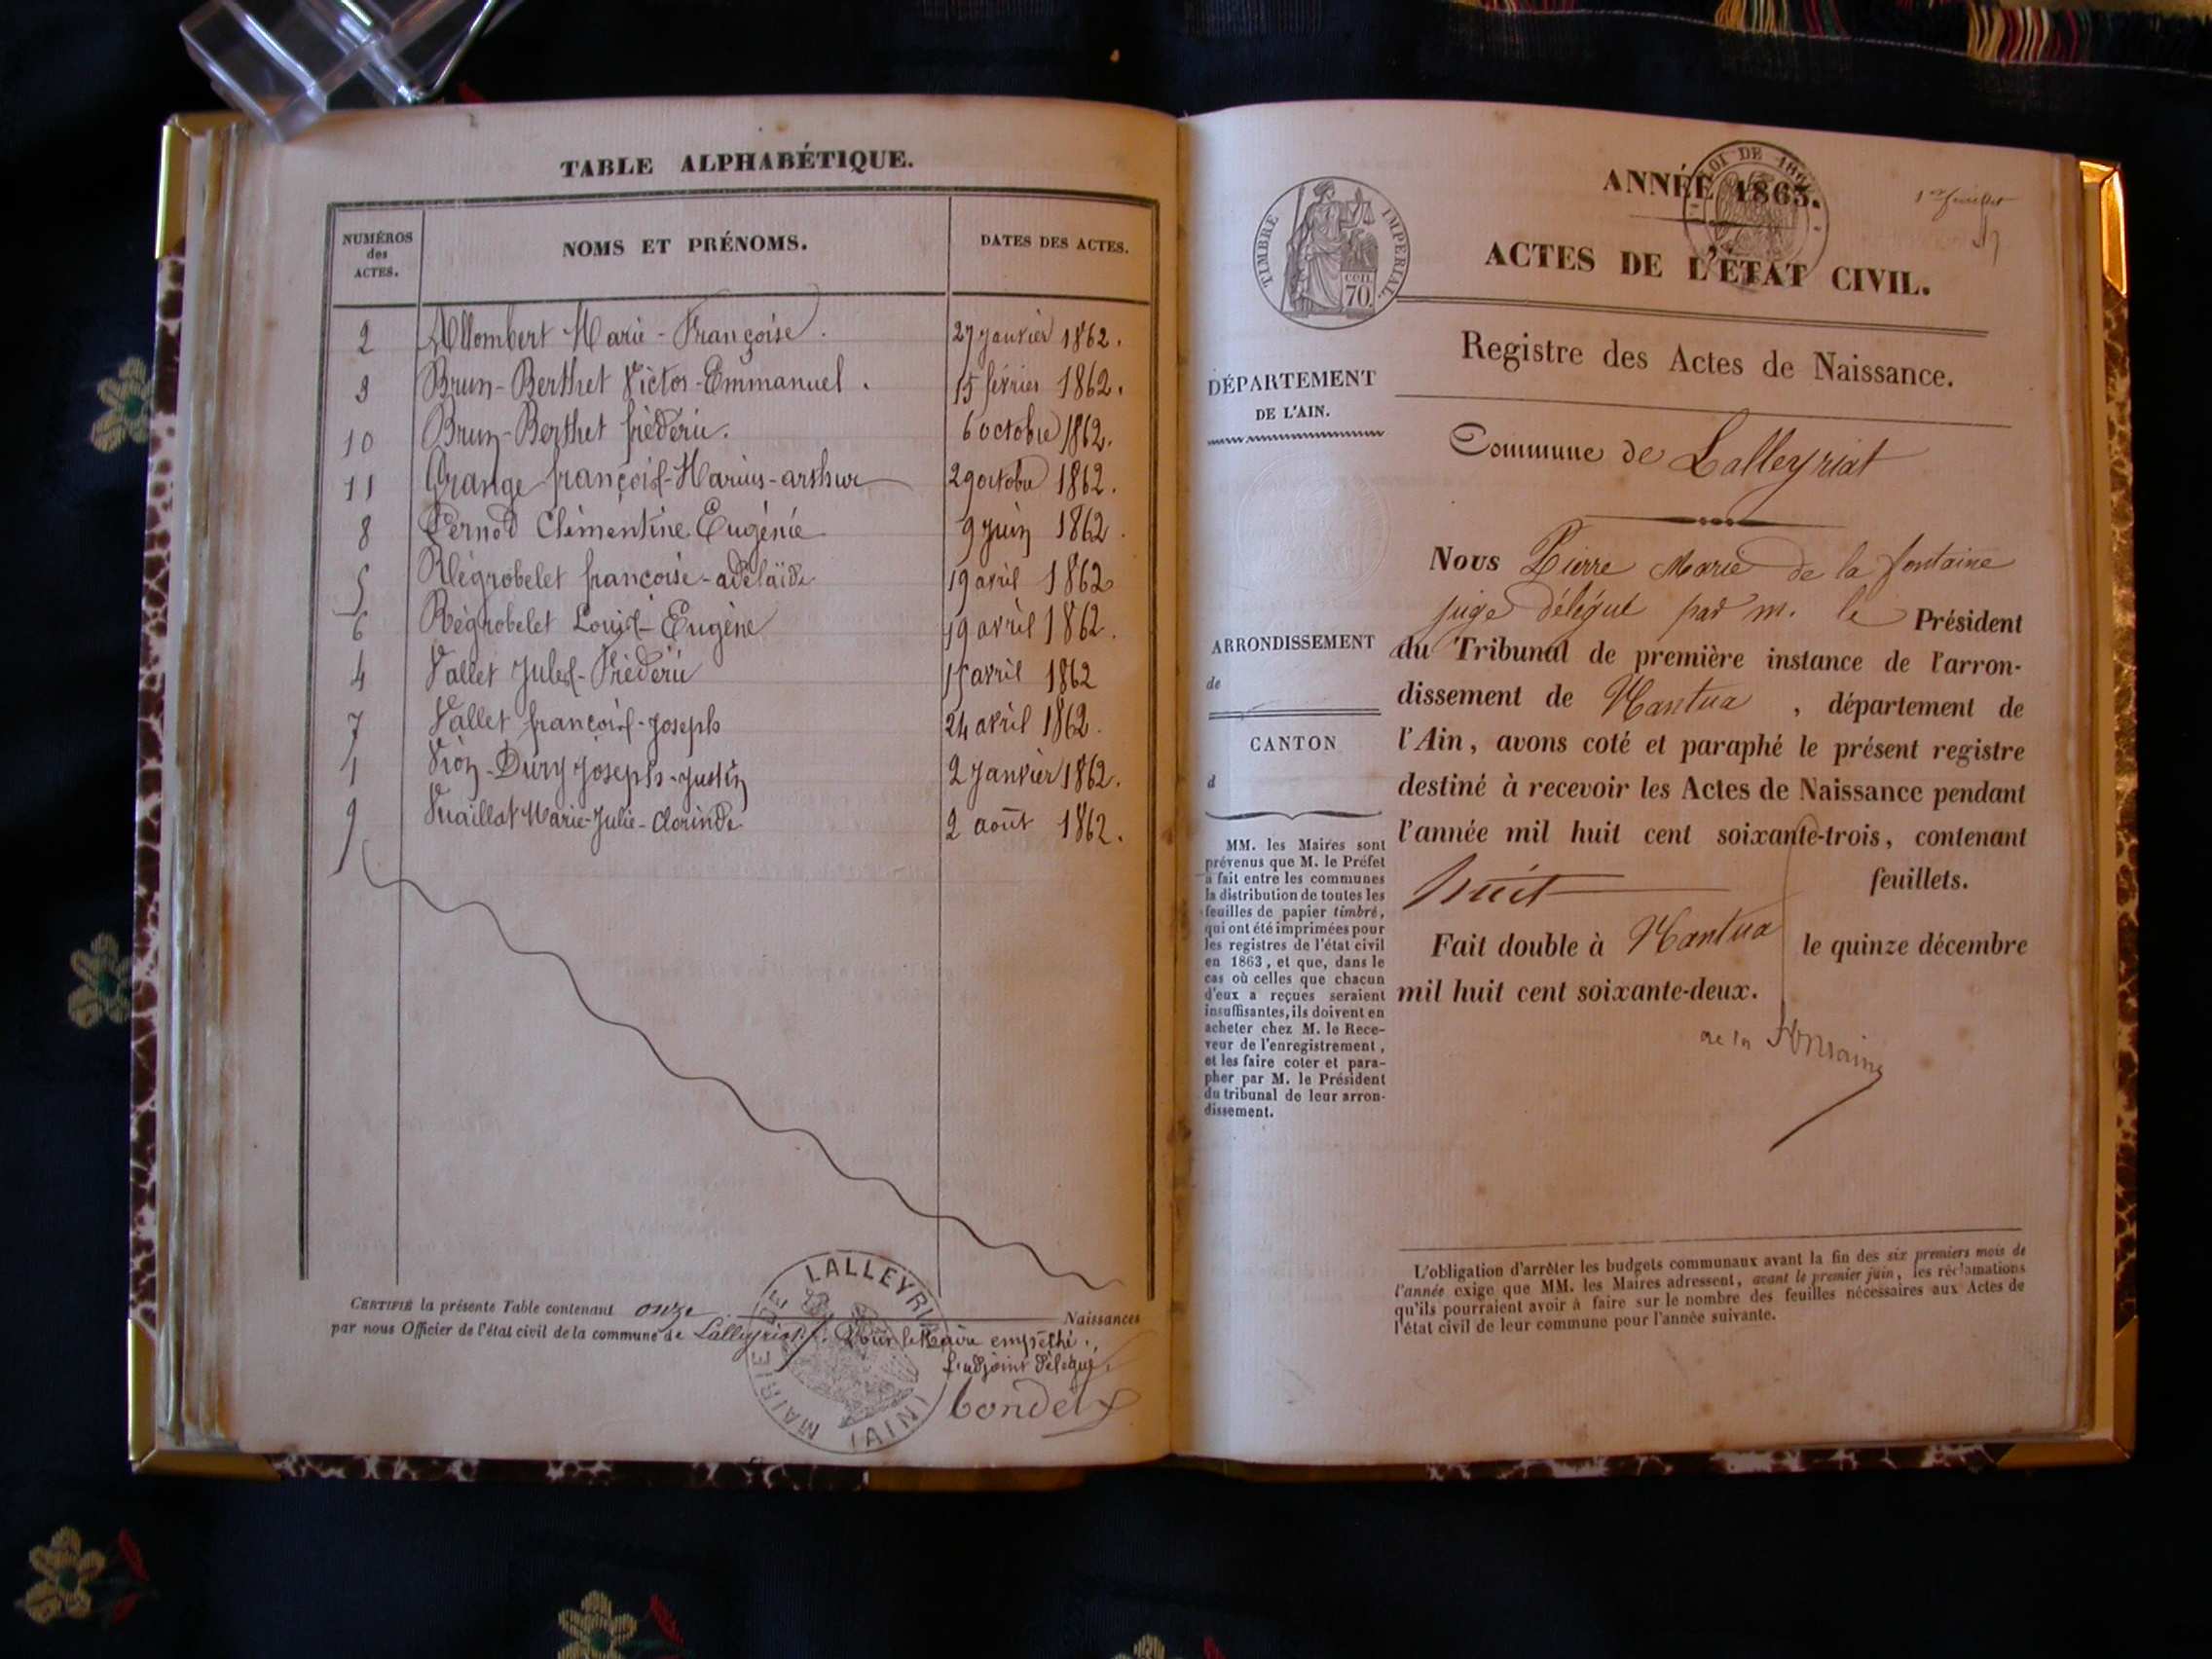 TABLE ALPHABÉTIQUE.
NUMÉROS des ACTES. NOMS ET PRÉNOMS. DATES DES ACTES.
2 Allombert Marie-Françoise. 27 janvier 1862.
3 Brun-Berthet Victor-Emmanuel. 15 février 1862.
10 Brun-Berthet frédéric. 6 octobre 1862.
11 Grange françois-Marius-arthur 29 octobre 1862.
8 Pernod Clémentine Eugénie 9 juin 1862.
5 Régrobelet françoise-adélaïde 19 avril 1862
6 Régrobelet Louis-Eugène 19 avril 1862.
4 Vallet Jules-Frédéric 15 avril 1862
7 Vallet françois-Joseph 24 avril 1862.
1 Vion-Dury Joseph-Justin 2 Janvier 1862.
9 Vuaillat Marie-Julie-Clorinde 2 août 1862.
CERTIFIÉ la présente Table contenant onze Naissances
par nous Officier de l'état civil de la commune de Lalleyriat. Pour le Maire empêché.,
L'adjoint délégué,
MAIRIE DE LALLEYRIAT (AIN)
ANNÉE 1863.
LOI DE
1er feuillet
TIMBRE IMPÉRIAL.
CENT. 70.
ACTES DE L'ÉTAT CIVIL.
Registre des Actes de Naissance.
DÉPARTEMENT
DE L'AIN.
Commune de Lalleyriat
Nous Pierre Marie de la fontaine
juge délégué par m. le Président
du Tribunal de première instance de l'arron-
dissement de Nantua, département de
l'Ain, avons coté et paraphé le présent registre
destiné à recevoir les Actes de Naissance pendant
l'année mil huit cent soixante-trois, contenant
huit feuillets.
Fait double à Nantua le quinze décembre
mil huit cent soixante-deux.
de la Fontaine
ARRONDISSEMENT
de
CANTON
d
MM. les Maires sont
prévenus que M. le Préfet
a fait entre les communes
la distribution de toutes les
feuilles de papier timbré,
qui ont été imprimées pour
les registres de l'état civil
en 1863, et que, dans le
cas où celles que chacun
d'eux a reçues seraient
insuffisantes, ils doivent en
acheter chez M. le Rece-
veur de l'enregistrement,
et les faire coter et para-
pher par M. le Président
du tribunal de leur arron-
dissement.
L'obligation d'arrêter les budgets communaux avant la fin des six premiers mois de
l'année exige que MM. les Maires adressent, avant le premier juin, les réclamations
qu'ils pourraient avoir à faire sur le nombre des feuilles nécessaires aux Actes de
l'état civil de leur commune pour l'année suivante.